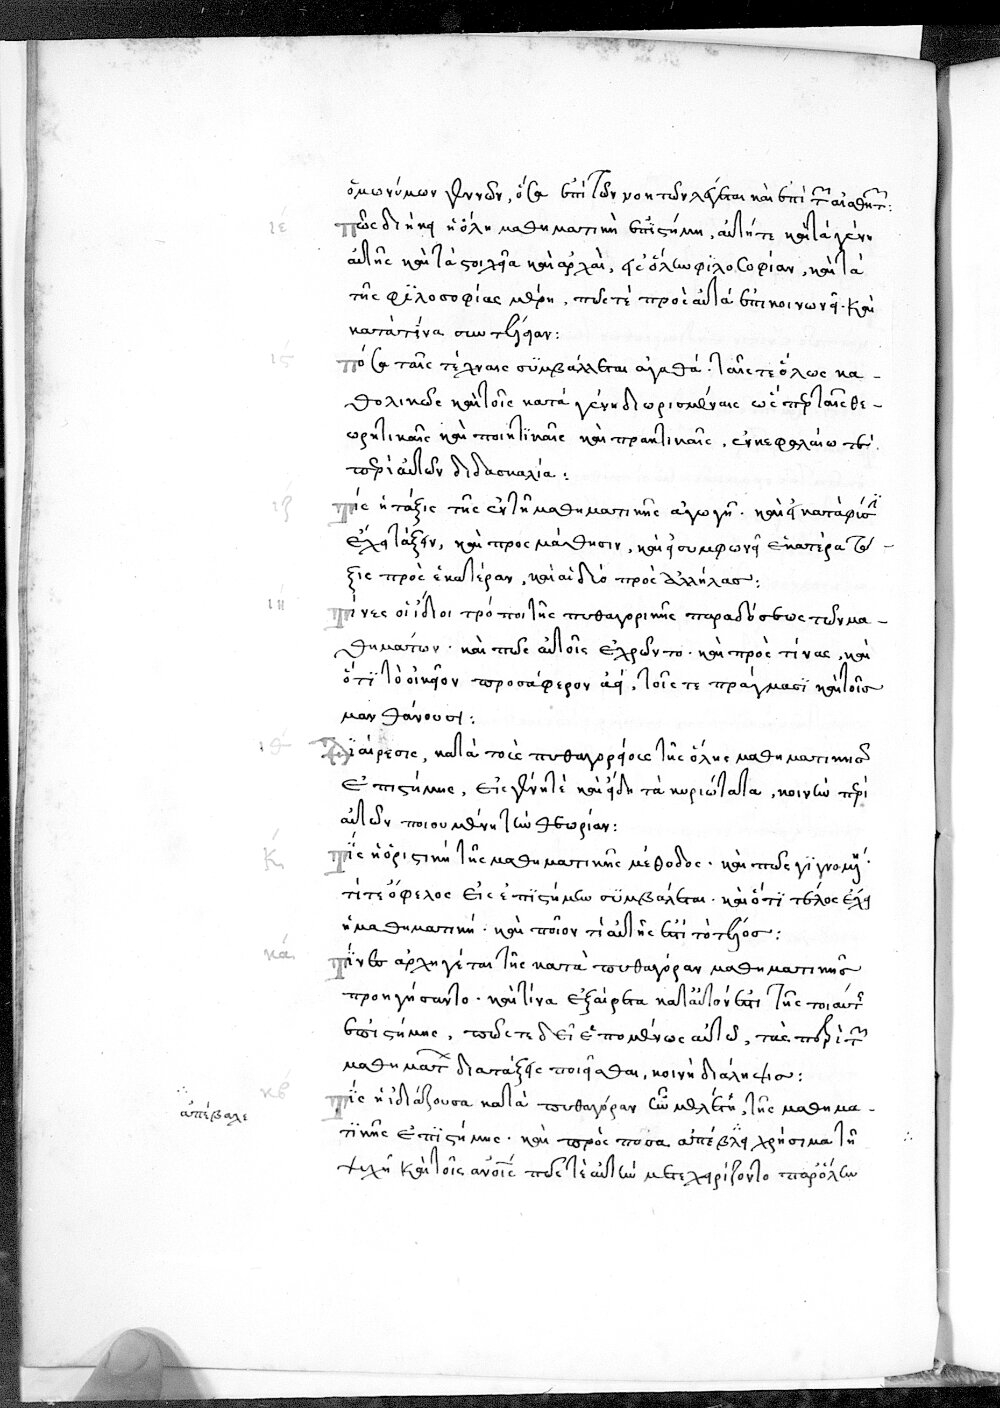 ὁμωνύμων γεννῶν, ὅσα ἐπὶ τῶν νοητῶν λέγεται καὶ ἐπὶ τῶν αἰσθητῶν:
ιε πῶς διήκει ἡ ὅλη μαθηματικὴ ἐπιστήμη, αὐτή τε καὶ τὰ γένη
αὐτῆς καὶ τὰ στοιχεῖα καὶ ἀρχαὶ, εἰς ὅλην φιλοσοφίαν, καὶ τὰ
τῆς φιλοσοφίας μέρη, πῶς τὲ πρὸς αὐτὰ ἐπικοινωνεῖ. καὶ
κατὰ τίνα συντέλειαν:
ις πόσα ταῖς τέχναις συμβάλλεται ἀγαθά. ταῖς τε ὅλως κα-
θολικῶς καὶ τοῖς κατὰ γένη διωρισμέναις ὡς περὶ ταῖς θε-
ωρητικαῖς καὶ ποιητικαῖς καὶ πρακτικαῖς, ἐν κεφαλαίω
περὶ αὐτῶν διδασκαλία:
ιζ τίς ἡ τάξις τῆς ἐν τῇ μαθηματικῆς ἀγωγῆ. καὶ εἰ κατὰ φύσιν
ἔχει τάξιν, καὶ προς μάθησιν, καὶ εἰ συμφωνεῖ ἑκατέρα τά-
ξις πρὸς ἑκατέραν, καὶ αἱ δύο πρὸς ἀλλήλας:
ιη τίνες οἱ ἴδιοι τρόποι τῆς πυθαγορικῆς παραδόσεως τῶν μα-
θημάτων. καὶ πῶς αὐτοῖς ἐχρῶντο. καὶ πρὸς τίνας, καὶ
ὅτι τὸ οἰκεῖον προσέφερον ἀεί, τοῖς τε πράγμασι καὶ τοῖς
μανθάνουσι:
ιθ διαίρεσις, κατὰ τοὺς πυθαγορείους τῆς ὅλης μαθηματικῆς
ἐπιστήμης, εἰς γένη τὲ καὶ εἴδη τὰ κυριώτατα, κοινὴν περὶ
αὐτῶν ποιουμένη τὴν θεωρίαν:
κ τίς ἡ ὁριστικὴ τῆς μαθηματικῆς μέθοδος. καὶ πῶς γίγνομένη.
τί τε ὄφελος εἰς ἐπιστήμην συμβάλεται. καὶ ὅτι τέλος ἔχει
ἡ μαθηματική. καὶ ποῖον τί αὐτῆς ἐστὶ τὸ τέλος:
κα τίνες ἀρχηγέται τῆς κατὰ πυθαγόραν μαθηματικῆς
προηγήσαντο. καὶ τίνα ἐξαίρετα κατ' αὐτόν ἐστὶ τῆς τοιαύτης
ἐπιστήμης, πῶς τε δεῖ ἑπομένως αὐτῶ, τὰς περὶ τῶν
μαθημάτων διατάξεις ποιεῖσθαι, κοινὴ διάληψις:
κβ τίς ἡ ἰδιάζουσα κατὰ πυθαγόραν ἦν μελέτη, τῆς μαθημα-
ἀπέβαλε
τικῆς ἐπιστήμης. καὶ πρὸς πόσα ἀπέβλεπε χρήσιμα τῆ
ψυχῆ καὶ τοῖς ἀνθρώποις πῶς τὲ αὐτὴν μετεχειρίζοντο παρ' ὅλην